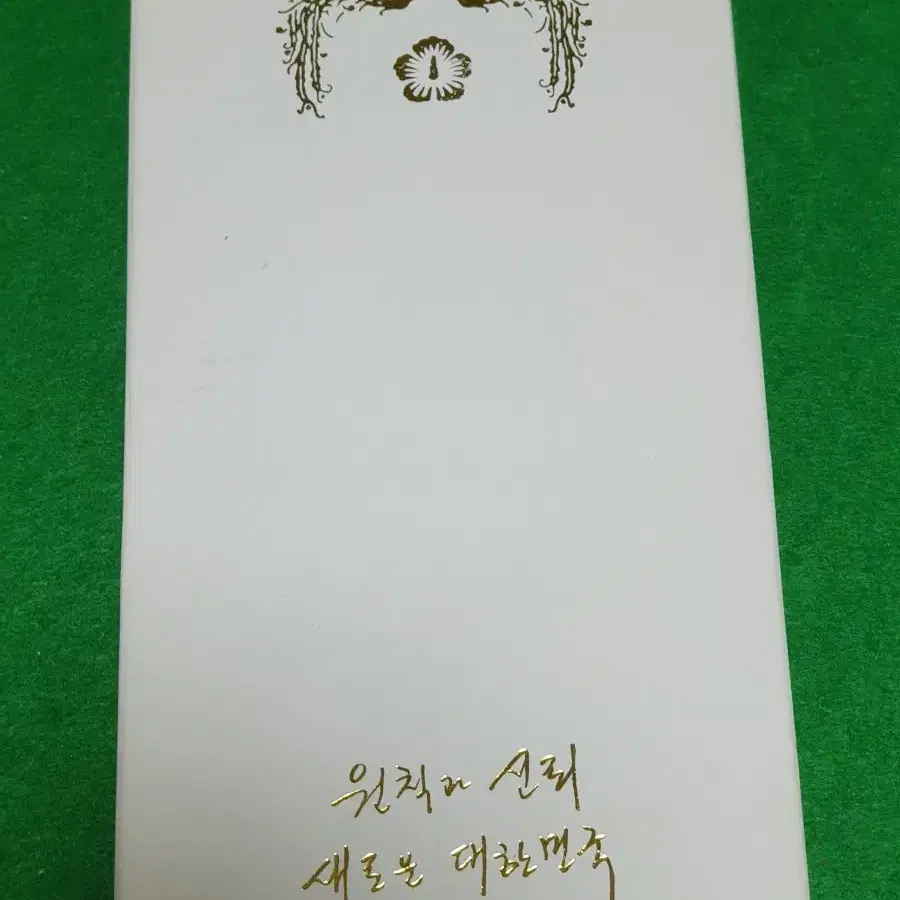 원칙과 신뢰
새로운 대한민국